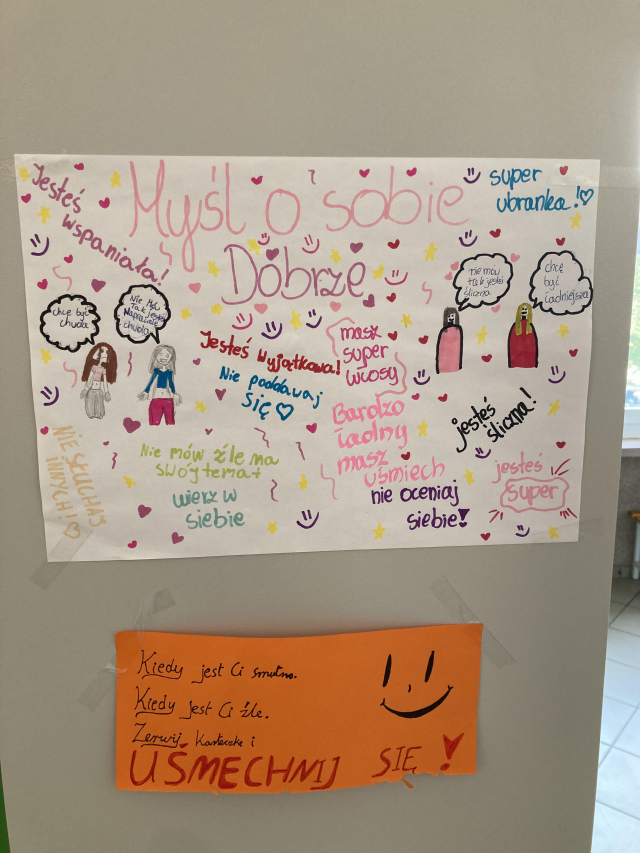 Jesteś
wspaniała!
Myśl o sobie
Dobrze
super
ubranka!
chcę być
chuda
Nie mów
tak jesteś
naprawdę
chuda
nie mów
tak jesteś
śliczna
chcę
być
ładniejsza
Jesteś wyjątkowa!
Nie poddawaj
się
masz
super
włosy
Bardzo
ładny
masz
uśmiech
jesteś
śliczna!
NIE SŁUCHAJ
INNYCH!
Nie mów źle na
swój temat
wierz w
siebie
nie oceniaj
siebie!
jesteś
super
Kiedy jest Ci smutno.
Kiedy jest Ci źle.
Zerwij karteczkę i
UŚMECHNIJ SIĘ!